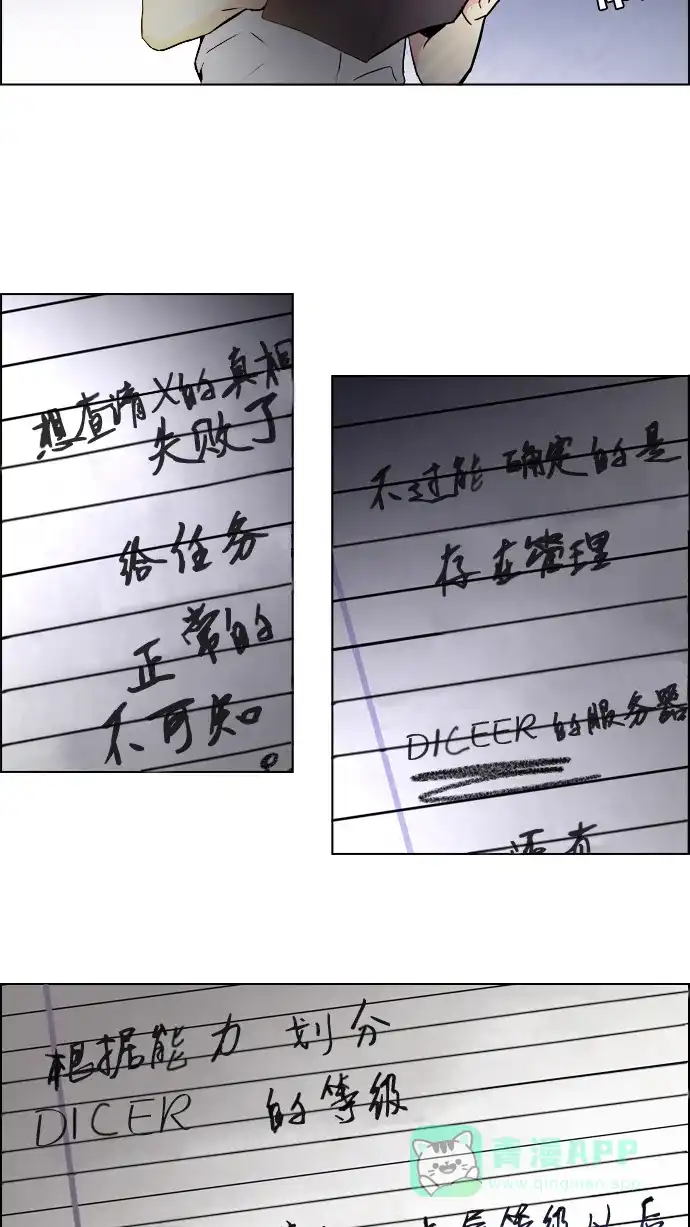 想查清X的真相
失败了
给任务
正常的
不可知。
不过能确定的是
存在管理
DICEER的服务器
还有
根据能力 划分
DICER 的等级
青漫APP